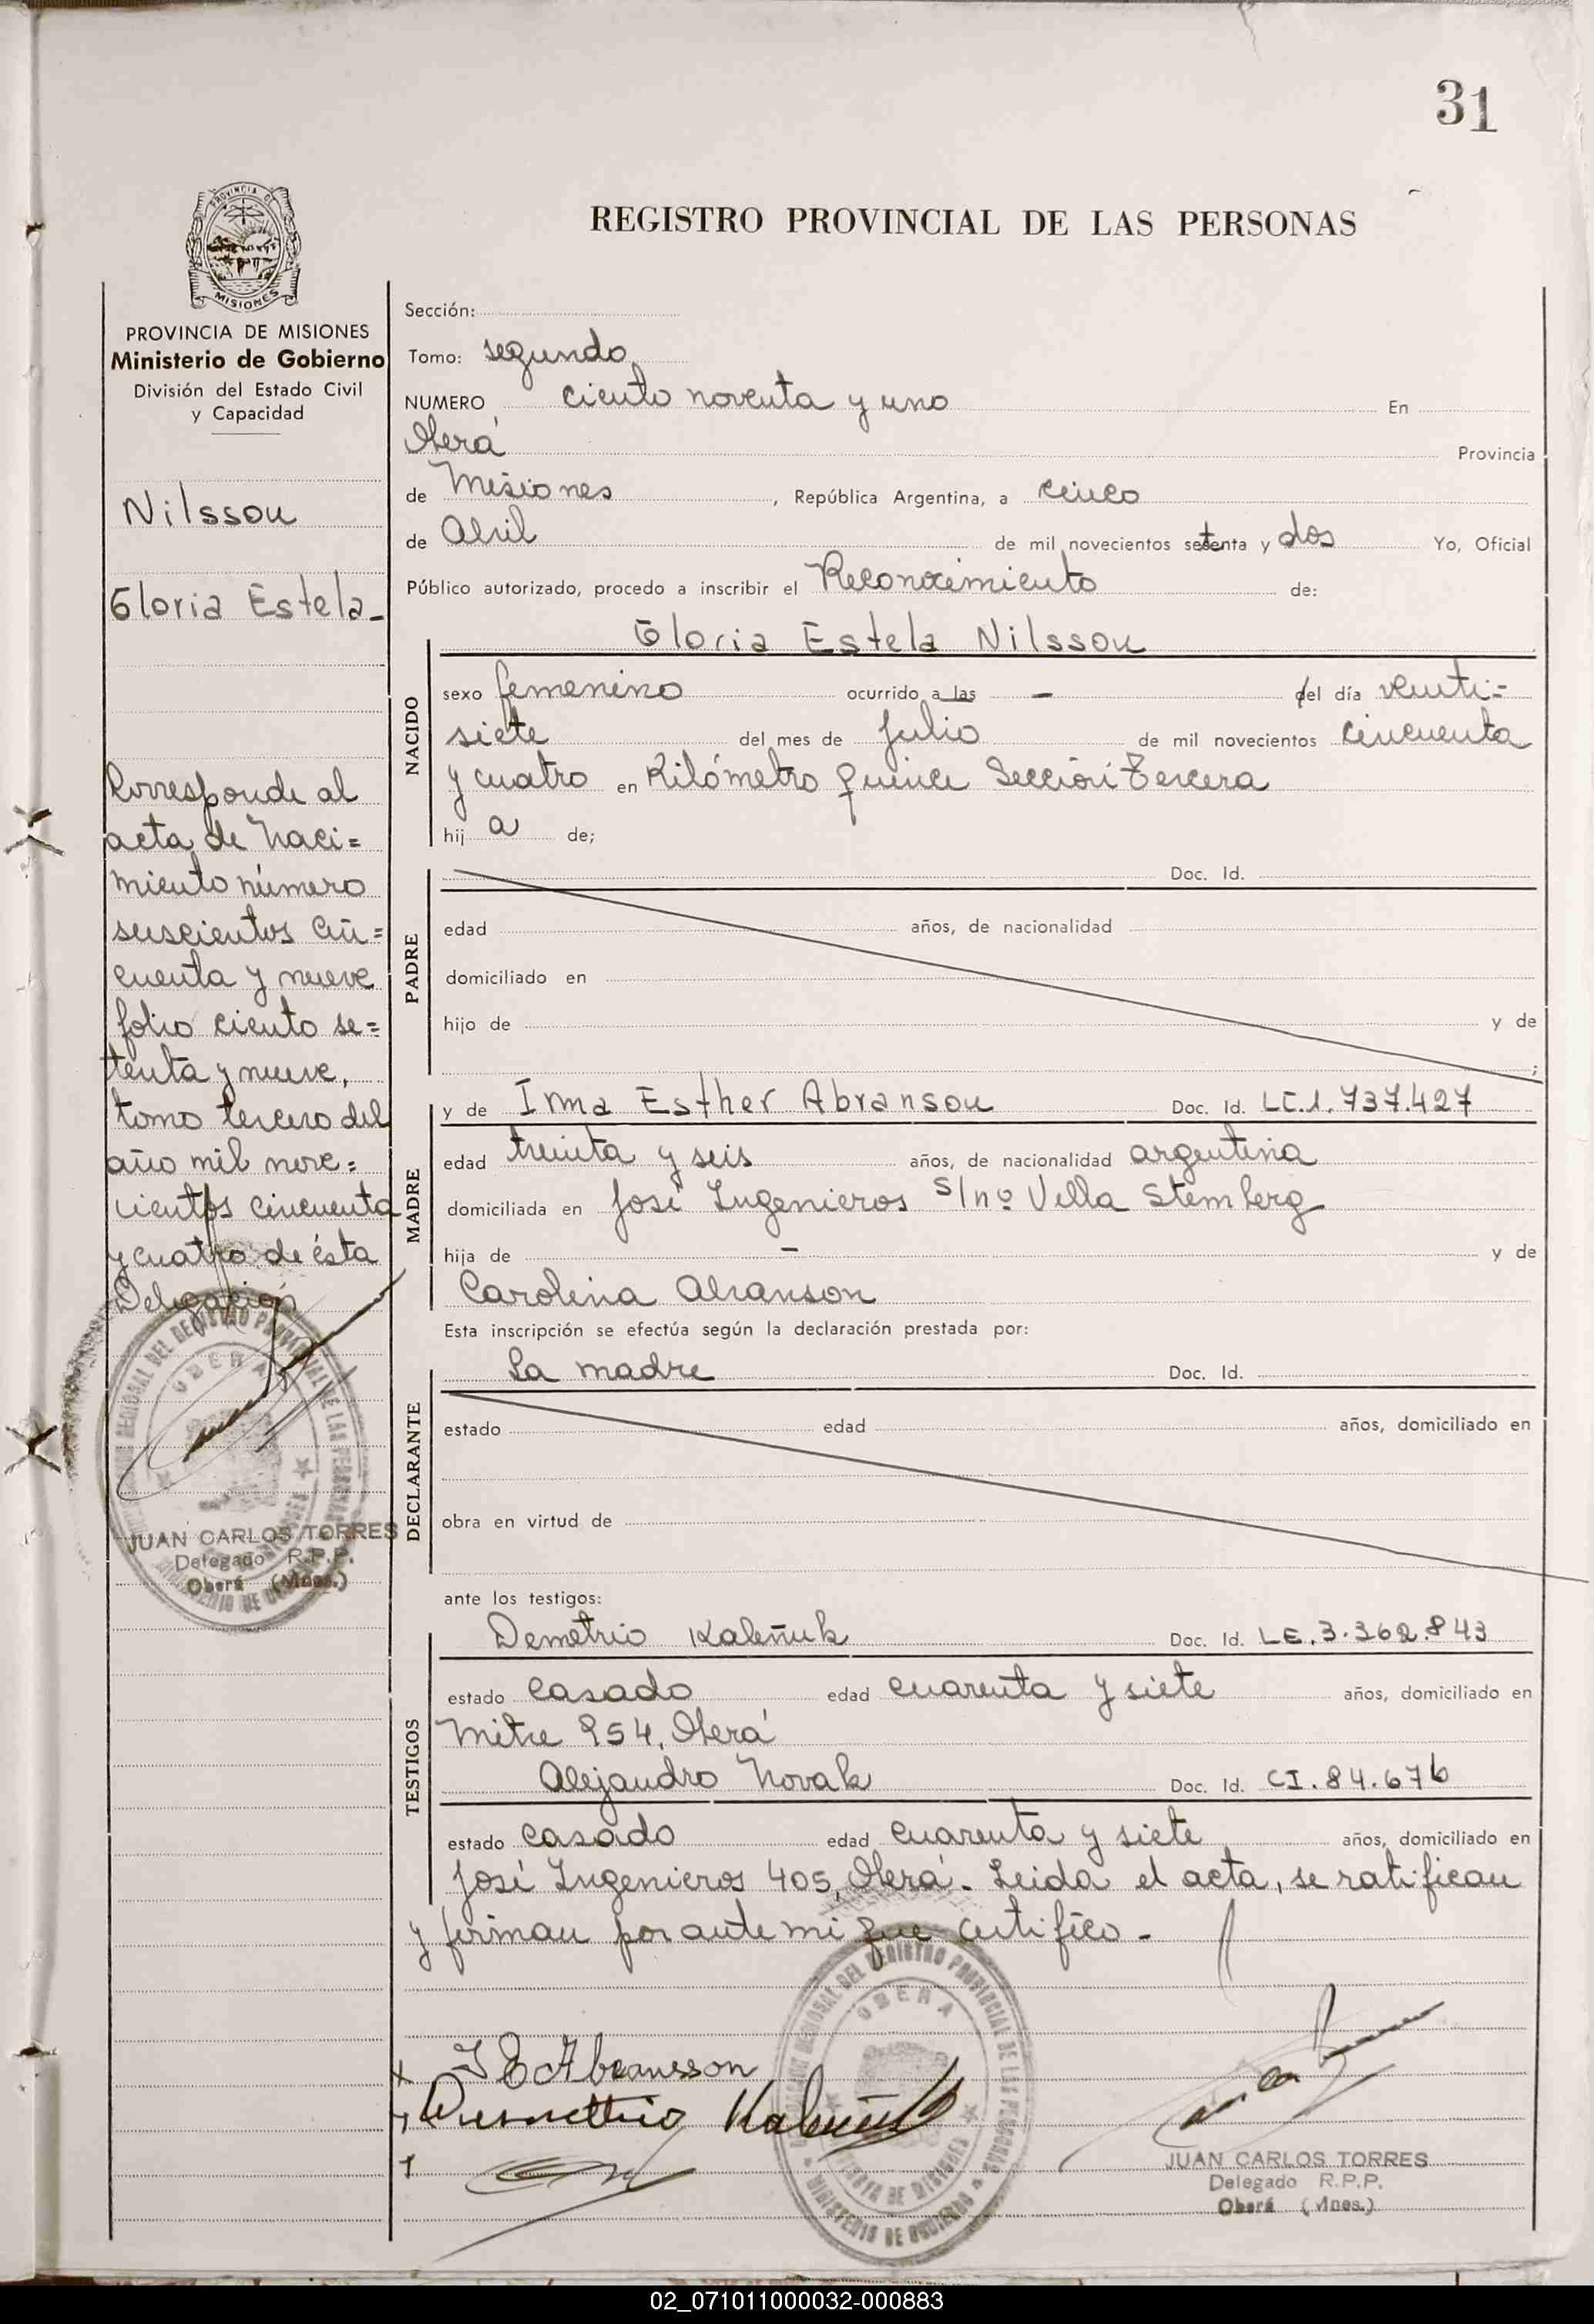 31
PROVINCIA DE
MISIONES
REGISTRO PROVINCIAL DE LAS PERSONAS
PROVINCIA DE MISIONES
Ministerio de Gobierno
División del Estado Civil
y Capacidad
Nilsson
Gloria Estela-
Corresponde al
acta de Naci=
miento número
seiscientos cin=
cuenta y nueve
folio ciento se=
tenta y nueve,
tomo tercero del
año mil nove=
cientos cincuenta
y cuatro de ésta
Delegación
OBERA
JUAN CARLOS TORRES
Delegado R.P.P.
Oberá (Mnes.)
Sección:
Tomo: segundo
NUMERO ciento noventa y uno En
Oberá Provincia
de Misiones, República Argentina, a cinco
de Abril de mil novecientos setenta y dos Yo, Oficial
Público autorizado, procedo a inscribir el Reconocimiento de:
Gloria Estela Nilsson
NACIDO
sexo femenino ocurrido a las - del día veinti=
siete del mes de Julio de mil novecientos cincuenta
y cuatro en Kilómetro quince Sección Tercera
hij a de;
PADRE
Doc. Id.
edad años, de nacionalidad
domiciliado en
hijo de y de
;
MADRE
y de Irma Esther Abranson Doc. Id. LC.1.737.427
edad treinta y seis años, de nacionalidad argentina
domiciliada en José Ingenieros s/nº Villa Stemberg
hija de - y de
Carolina Abranson
Esta inscripción se efectúa según la declaración prestada por:
DECLARANTE
La madre Doc. Id.
estado edad años, domiciliado en
obra en virtud de
ante los testigos:
TESTIGOS
Demetrio Kaleñuk Doc. Id. LE.3.362.843
estado casado edad cuarenta y siete años, domiciliado en
Mitre 954, Oberá
Alejandro Novak Doc. Id. CI.84.676
estado casado edad cuarenta y siete años, domiciliado en
José Ingenieros 405, Oberá.- Leida el acta, se ratifican
y firman por ante mi que certifico.-
I E Abransson
Demettrio Kaleñuk
OBERA
JUAN CARLOS TORRES
Delegado R.P.P.
Oberá (Mnes.)
02_071011000032-000883